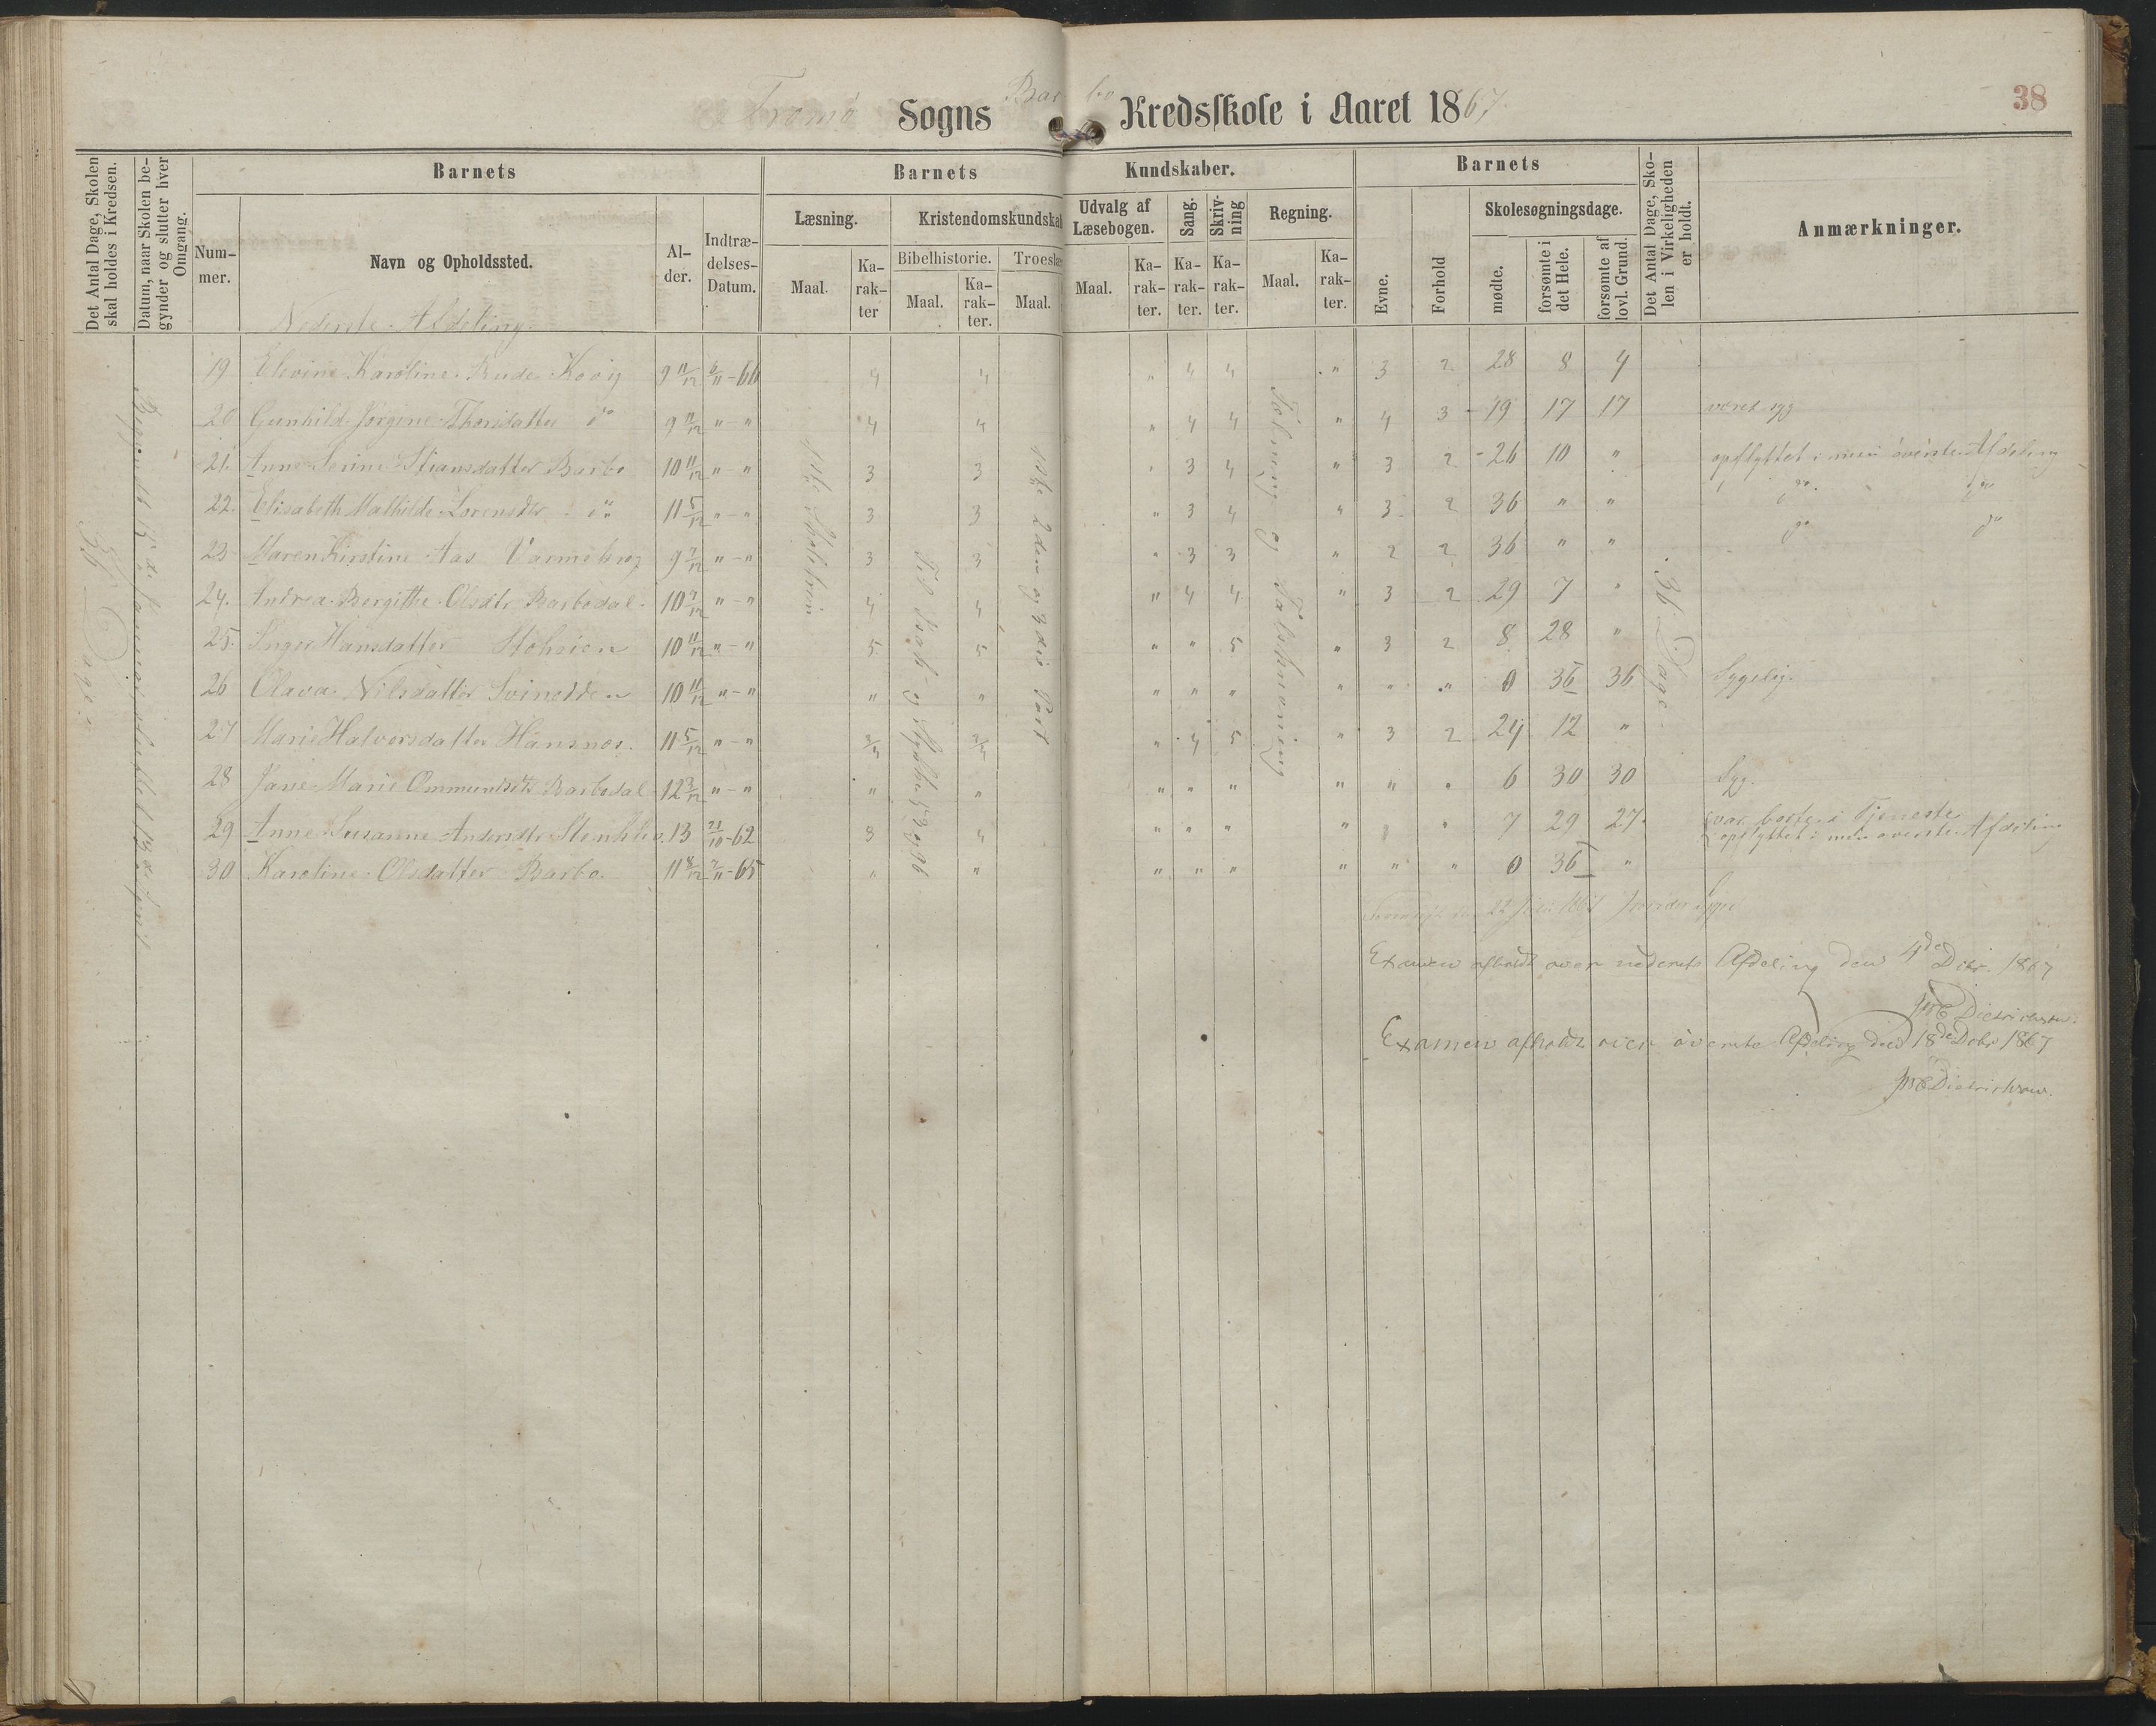 38
Tromø Sogns Barbo Kredsskole i Aaret 1867,
Det Antal Dage, Skolen skal holdes i Kredsen.
Datum, naar Skolen begynder og slutter hver Omgang.
Barnets
Nummer.
Navn og Opholdssted.
Alder.
Indtrædelses-Datum.
Barnets Kundskaber.
Læsning.
Maal.
Karakter
Kristendomskundskab
Bibelhistorie.
Maal.
Karakter.
Troeslære
Maal.
Udvalg af Læsebogen.
Maal.
Karakter.
Sang.
Karakter.
Skrivning
Karakter.
Regning.
Maal.
Karakter.
Barnets
Evne.
Forhold
Skolesøgningsdage.
mødte.
forsømte i det Hele.
forsømte af lovl. Grund.
Det Antal Dage, Skolen i Virkeligheden er holdt.
Anmærkninger.
Nederste Afdeling.
36 Dage
1ste 2den og 3die Part
Tælning og Talskrivning
36 Dage
19 Elevine Karoline Rude Kovig 9 11/12 6/11-66 4 4 " 4 4 " 3 2 28 8 4
20 Gunhild Jørgine Thorsdatter do 9 11/12 "-" 4 4 " 4 4 " 4 3 19 17 17 været syg
21. Anne Serine Stiansdatter Barbo 10 11/12 "-" 3 3 " 3 4 " 3 2 26 10 " opflyttet i min øverste Afdeling
22. Elisabeth Mathilde Lorensdtr do 11 5/12 "-" 3 3 " 3 4 " 3 2 36 " " do do
23 Maren Kirstine Aas 9 7/12 "-" 3 3 " 3 3 " 2 2 36 " " do do
24. Andrea Bergitthe Olsdtr Barbodal 10 7/12 "-" 4 4 " 4 4 " 3 2 29 7 "
25. Inger Hansdatter 10 11/12 "-" 5 5 " " 5 " 3 2 8 28 "
26 Olava Nilsdatter Svinodden 10 11/12 "-" " " " " " " " " 0 36 36 Sygelig.
27 Marie Halvorsdatter Hansnes. 11 5/12 "-" 3/4 3/4 " 4 5 " 3 2 24 12 "
28 Jane Marie Ommundsdtr Barbodal 12 3/12 "-" " " " " " " " " 6 30 30 Syg.
29 Anne Susanne Andersdtr 13 21/10-62 3 4 " " " " " " 7 29 27 var borte i Tjeneste opflyttet i min øverste Afdeling
30 Karoline Olsdatter Barbo. 11 8/12 2/11-65 " " " " " " " " 0 36 "
Examen afholdt over nederste Afdeling den 4de Dcbr. 1867
Dietrichson.
Examen afholdt over øverste Afdeling den 18de Dcbr 1867
Dietrichson.